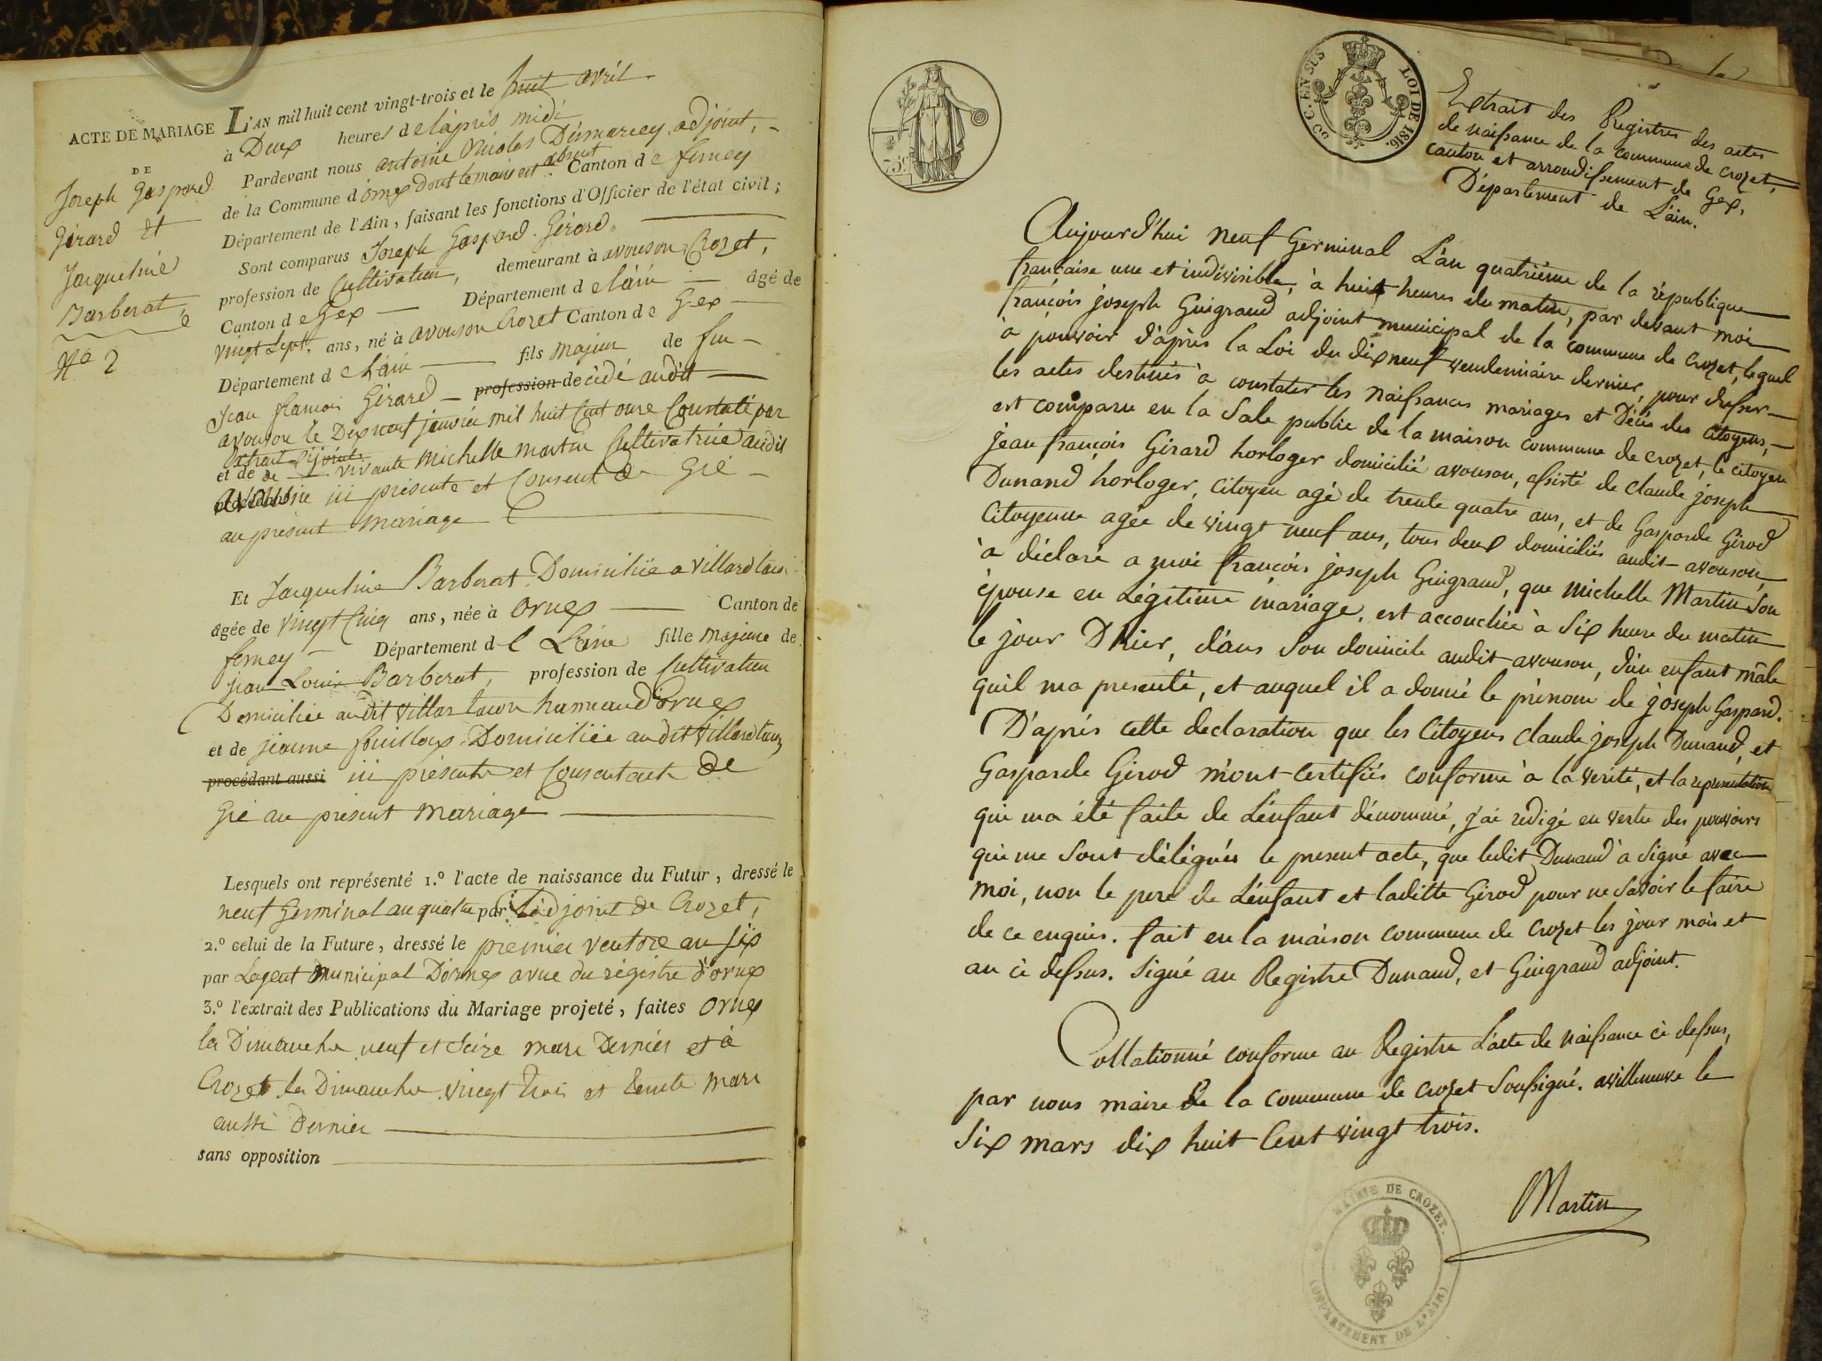 ACTE DE MARIAGE
DE
Joseph Gaspard
Girard Et
Jacqueline
Barberat
N° 2
L'AN mil huit cent vingt-trois et le huit avril
à Deux heures de l'après midi
Pardevant nous antoine Nicolas Démarcey adjoint,
de la Commune d'ornex Dont le maire est absent Canton de ferney
Département de l'Ain, faisant les fonctions d'Officier de l'état civil;
Sont comparus Joseph Gaspard Girard,
profession de Cultivateur, demeurant à avouson Crozet,
Canton de Gex Département de l'ain âgé de
vingt sept ans, né à avouson Crozet Canton de Gex
Département de l'ain fils majeur de feu
Jean françois Girard profession décédé audit
avouson le Dix neuf janvier mil huit Cent onze Constaté par
Extrait cijoint
et de vivante Michelle martin Cultivatrice audit
avouson ici présente et Consent de Gré
au présent mariage
Et Jacqueline Barberat Domiciliée a villard tacon
âgée de vingt Cinq ans, née à Ornex Canton de
ferney Département de L'ain fille majeure de
jean Louis Barberat, profession de Cultivateur
Domiciliée audit villar tacon hameau d'Ornex
et de jeanne fouilloux Domiciliée audit villard tacon
procédant aussi ici présents et Consentants de
Gré au présent mariage
Lesquels ont représenté 1.° l'acte de naissance du Futur, dressé le
neuf Germinal an quatre par L'adjoint de Crozet,
2.° celui de la Future, dressé le premier ventose an six
par Lagent municipal D'ornex avue du régistre d'ornex
3.° l'extrait des Publications du Mariage projeté, faites Ornex
les Dimanche neuf et Seize mars Dernier et à
Crozet les Dimanche vingt trois et trente mars
aussi Dernier
sans opposition
75c
CEN SUS
LOI DE 1816.
Extrait des Registres des actes
de naissance de la commune de Crozet,
canton et arrondissement de Gex,
Département de L'ain.
Aujourd'hui neuf Germinal L'an quatrième de la république
francaise une et indivisible, à huit heures du matin, par devant moi
françois joseph Guigrand adjoint municipal de la commune de Crozet, lequel
à pouvoir d'après la Loi du dix neuf vendemiaire dernier, pour dresser
les actes destinés à constater les Naissances mariages et Décès des Citoyens,
est comparu en la Sale public de la maison commune de Crozet, le citoyen
jean françois Girard horloger domicilié avouson, assisté de Claude joseph
Dunand horloger, Citoyen agé de trente quatre ans, et de Gasparde Girod
Citoyenne agée de vingt neuf ans, tous deux domiciliés audit avouson,
à déclaré a moi françois joseph Guigrand, que Michelle Martin Son
épouse en Légitime mariage, est accouchée à Six heure du matin
le jour D'hier, dans Son domicile audit avouson, d'un enfant mâle
quil ma presenté, et auquel il a donné le prénom de joseph Gaspard.
D'après cette declaration que les Citoyens Claude joseph Dunand, et
Gasparde Girod m'ont certifiés conforme à la verité, et la representation
qui ma été faite de L'enfant dénommé, j'ai redigé en vertu des pouvoirs
qui me sont délégués le present acte, que ledit Dunand à Signé avec
moi, non le pere de L'enfant et laditte Girod pour ne Savoir le faire
de ce enquis. fait en la maison commune de Crozet les jour mois et
an ci dessus. Signé au Registre Dunand, et Guigrand adjoint.
Collationné conforme au Registre L'acte de naissance ci dessus,
par nous maire de la commune de crozet Soussigné. avilleneuve le
Six mars dix huit Cent vingt trois.
Martin
MAIRIE DE CROZET.
(DEPARTEMENT DE L'AIN)